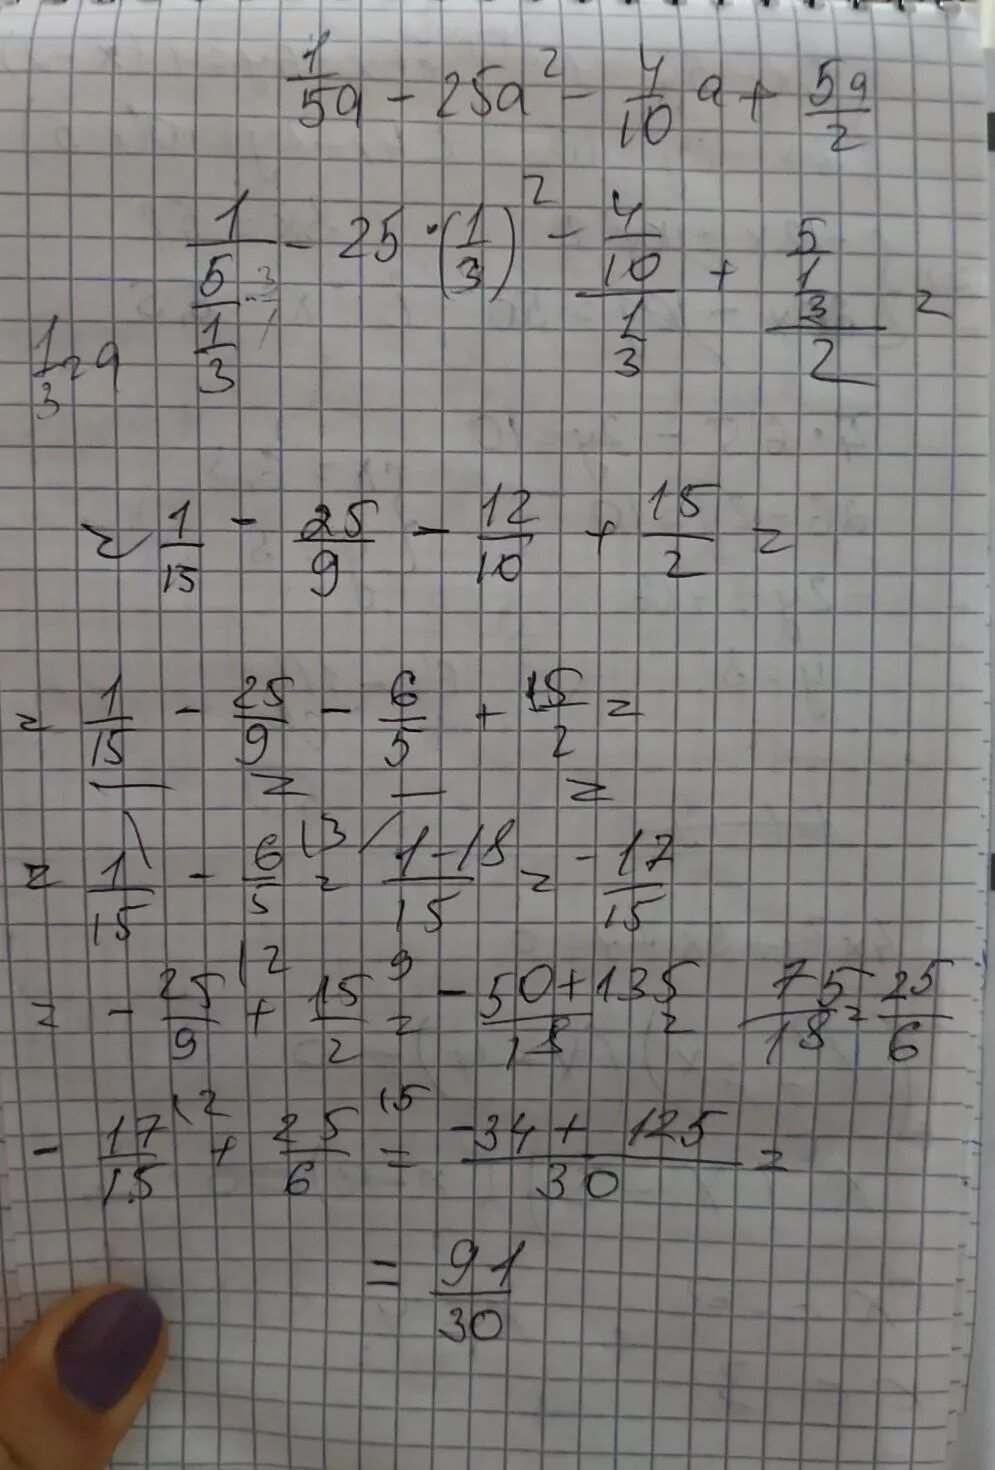 1/5a - 25a² - 4/10 a + 5a/2
1/(5/(1/3)) - 25 · (1/3)² - (4/10)/(1/3) + (5 1/3)/2 =
1/3 = a
= 1/15 - 25/9 - 12/10 + 15/2 =
= 1/15 - 25/9 - 6/5 + 15/2 =
= 1/15 - 6/5 (3 = (1-18)/15 = - 17/15
= - 25/9 (2 + 15/2 9 = (-50+135)/18 = 75/18 = 25/6
- 17/15 (2 + 25/6 (5 = (-34 + 125)/30 =
= 91/30